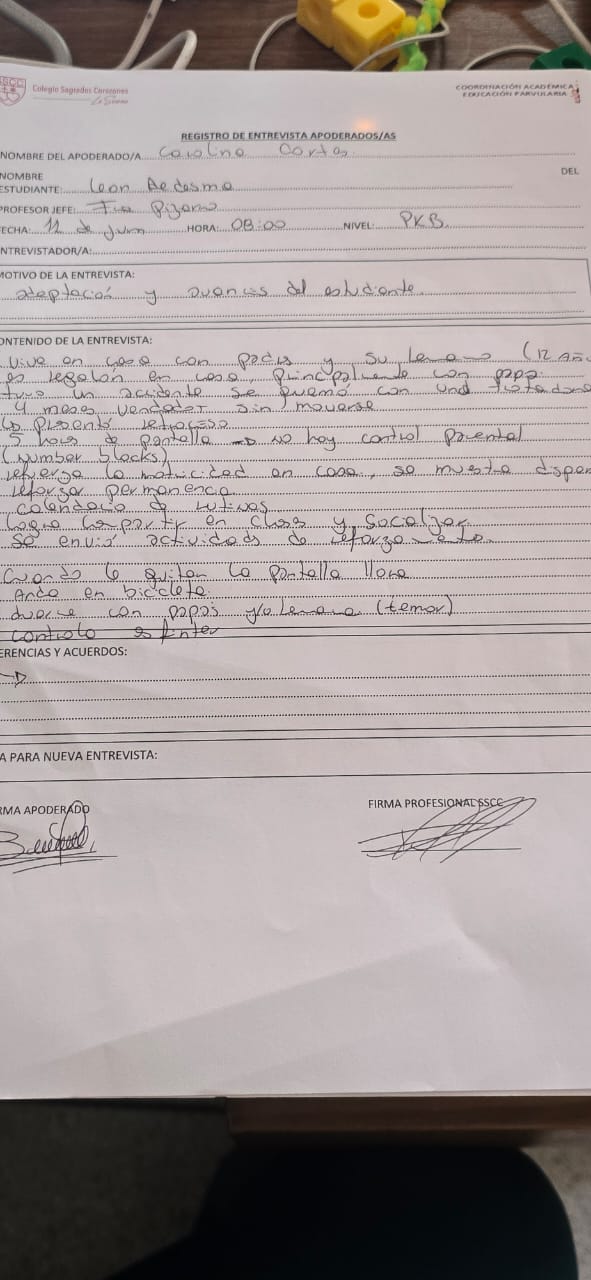 Colegio Sagrados Corazones
La Serena
COORDINACIÓN ACADÉMICA
EDUCACIÓN PARVULARIA
REGISTRO DE ENTREVISTA APODERADOS/AS
NOMBRE DEL APODERADO/A Carolina Cortes
NOMBRE DEL
ESTUDIANTE: Leon Ledesma
PROFESOR JEFE: Fca Pizarro
FECHA: 12 de Junio HORA: 08:00 NIVEL: PKB
NTREVISTADOR/A:
MOTIVO DE LA ENTREVISTA:
adaptación y avances del estudiante
ONTENIDO DE LA ENTREVISTA:
Vive en casa con padres y su hermano (12 Año
es regalon en casa, principalmente con papa
tuvo un accidente se quemó con una trotadora
4 meses vendado sin moverse
presentó retroceso
5 horas de pantalla → no hay control parental
(Number blocks)
refuerza la motricidad en casa, se muestra disper
reforzar permanencia
calendario de rutinas
logra compartir en clases y socializar
se envió actividades de reforzamiento.
Cuando le quitan la pantalla llora
Anda en bicicleta
duerme con papas y/o hermano (temor)
controla esfinter
ERENCIAS Y ACUERDOS:
→
A PARA NUEVA ENTREVISTA:
RMA APODERADO FIRMA PROFESIONAL SSCC